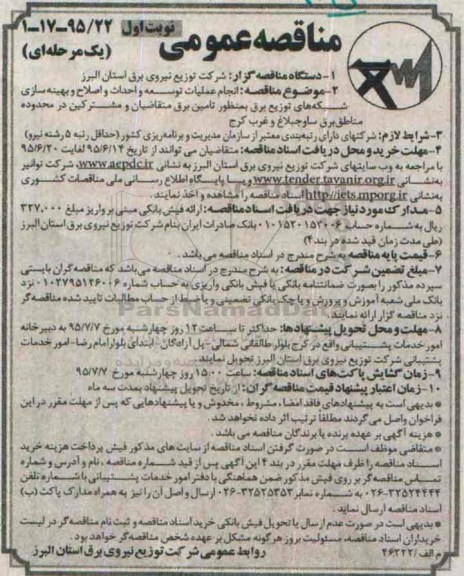 مناقصه عمومی
نوبت اول
۱-۱۷-۹۵/۲۲
(یک مرحله‌ای)
۱-دستگاه مناقصه گزار: شرکت توزیع نیروی برق استان البرز
۲-موضوع مناقصه: انجام عملیات توسعه و احداث و اصلاح و بهینه سازی
شبکه‌های توزیع برق بمنظور تامین برق متقاضیان و مشترکین در محدوده
مناطق برق ساوجبلاغ و غرب کرج
۳-شرایط لازم: شرکتهای دارای رتبه‌بندی معتبر از سازمان مدیریت و برنامه‌ریزی کشور (حداقل رتبه ۵ رشته نیرو)
۴-مهلت خرید و محل دریافت اسناد مناقصه: متقاضیان می توانند از تاریخ ۹۵/۶/۱۴ لغایت ۹۵/۶/۲۰
با مراجعه به وب سایتهای شرکت توزیع نیروی برق استان البرز به نشانی www.aepdc.ir، شرکت توانیر
به نشانی www.tender.tavanir.org.ir و یا پایگاه اطلاع رسانی ملی مناقصات کشوری
به نشانی http://iets.mporg.ir اسناد مناقصه را مشاهده و اخذ نمایند.
۵-مدارک مورد نیاز جهت دریافت اسناد مناقصه: ارائه فیش بانکی مبنی بر واریز مبلغ ۳۲۷،۰۰۰
ریال به شماره حساب ۰۱۰۱۵۲۰۱۵۳۰۰۶ بانک صادرات ایران بنام شرکت توزیع نیروی برق استان البرز
(طی مدت زمان قید شده در بند ۴)
۶-قیمت پایه مناقصه به شرح مندرج در اسناد مناقصه می باشد.
۷-مبلغ تضمین شرکت در مناقصه: به شرح مندرج در اسناد مناقصه می باشد که مناقصه گران بایستی
سپرده مذکور را بصورت ضمانتنامه بانکی یا فیش بانکی واریزی به حساب شماره ۰۱۰۲۷۹۵۱۴۶۰۰۶ نزد
بانک ملی شعبه آموزش و پرورش و یا چک بانکی تضمینی و یا ضبط از حساب مطالبات تایید شده مناقصه گر
نزد مناقصه گزار ارائه نمایند.
۸-مهلت و محل تحویل پیشنهادها: حداکثر تا ساعت ۱۲ روز چهارشنبه مورخ ۹۵/۷/۷ به دبیرخانه
امور خدمات پشتیبانی واقع در کرج بلوار طالقانی شمالی-پل آزادگان-ابتدای بلوار امام رضا-امور خدمات
پشتیبانی شرکت توزیع نیروی برق استان البرز تحویل نمایند.
۹-زمان گشایش پاکت های اسناد مناقصه: ساعت ۱۵:۰۰ روز چهارشنبه مورخ ۹۵/۷/۷
۱۰-زمان اعتبار پیشنهاد قیمت مناقصه گران: از تاریخ تحویل پیشنهاد بمدت سه ماه
* بدیهی است به پیشنهادهای فاقد امضاء، مشروط، مخدوش و یا پیشنهادهایی که پس از مهلت مقرر در این
فراخوان واصل می گردند مطلقا ترتیب اثر داده نخواهد شد.
* هزینه آگهی بر عهده برنده یا برندگان مناقصه می باشد.
* متقاضی موظف است در صورت گرفتن اسناد مناقصه از سایت های مذکور فیش پرداخت هزینه خرید
اسناد مناقصه را ظرف مهلت مقرر در بند ۴ این آگهی پس از قید شماره مناقصه، نام و آدرس و شماره
تماس مناقصه گر بر روی فیش مذکور ضمن هماهنگی با دفتر امور خدمات پشتیبانی با شماره تلفن
۰۲۶-۳۲۵۲۴۴۴۴ به شماره نمابر ۳۲۵۲۵۳۵۳-۰۲۶ ارسال و اصل آن را نیز به همراه مدارک پاکت (ب)
اسناد مناقصه ارسال نماید.
* بدیهی است در صورت عدم ارسال یا تحویل فیش بانکی خرید اسناد مناقصه و ثبت نام مناقصه گر در لیست
خریداران اسناد مناقصه، مسئولیت بروز هرگونه مشکل بر عهده شخص مناقصه گر خواهد بود.
م الف/۴۶۳۲۲
روابط عمومی شرکت توزیع نیروی برق استان البرز
ParsNamadData